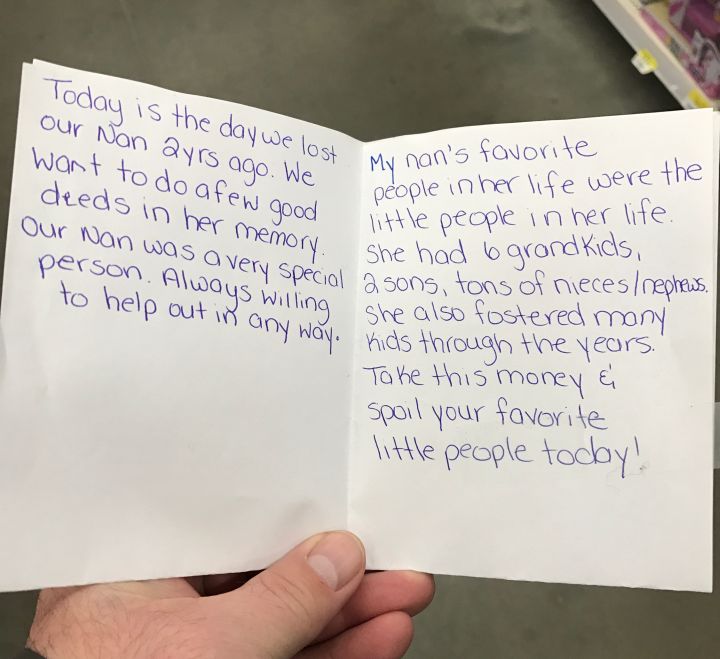 Today is the day we lost
our Nan 2yrs ago. We
want to do a few good
deeds in her memory.
Our Nan was a very special
person. Always willing
to help out in any way.
My nan's favorite
people in her life were the
little people in her life.
She had 6 grandkids,
2 sons, tons of nieces/nephews.
She also fostered many
kids through the years.
Take this money &
spoil your favorite
little people today!